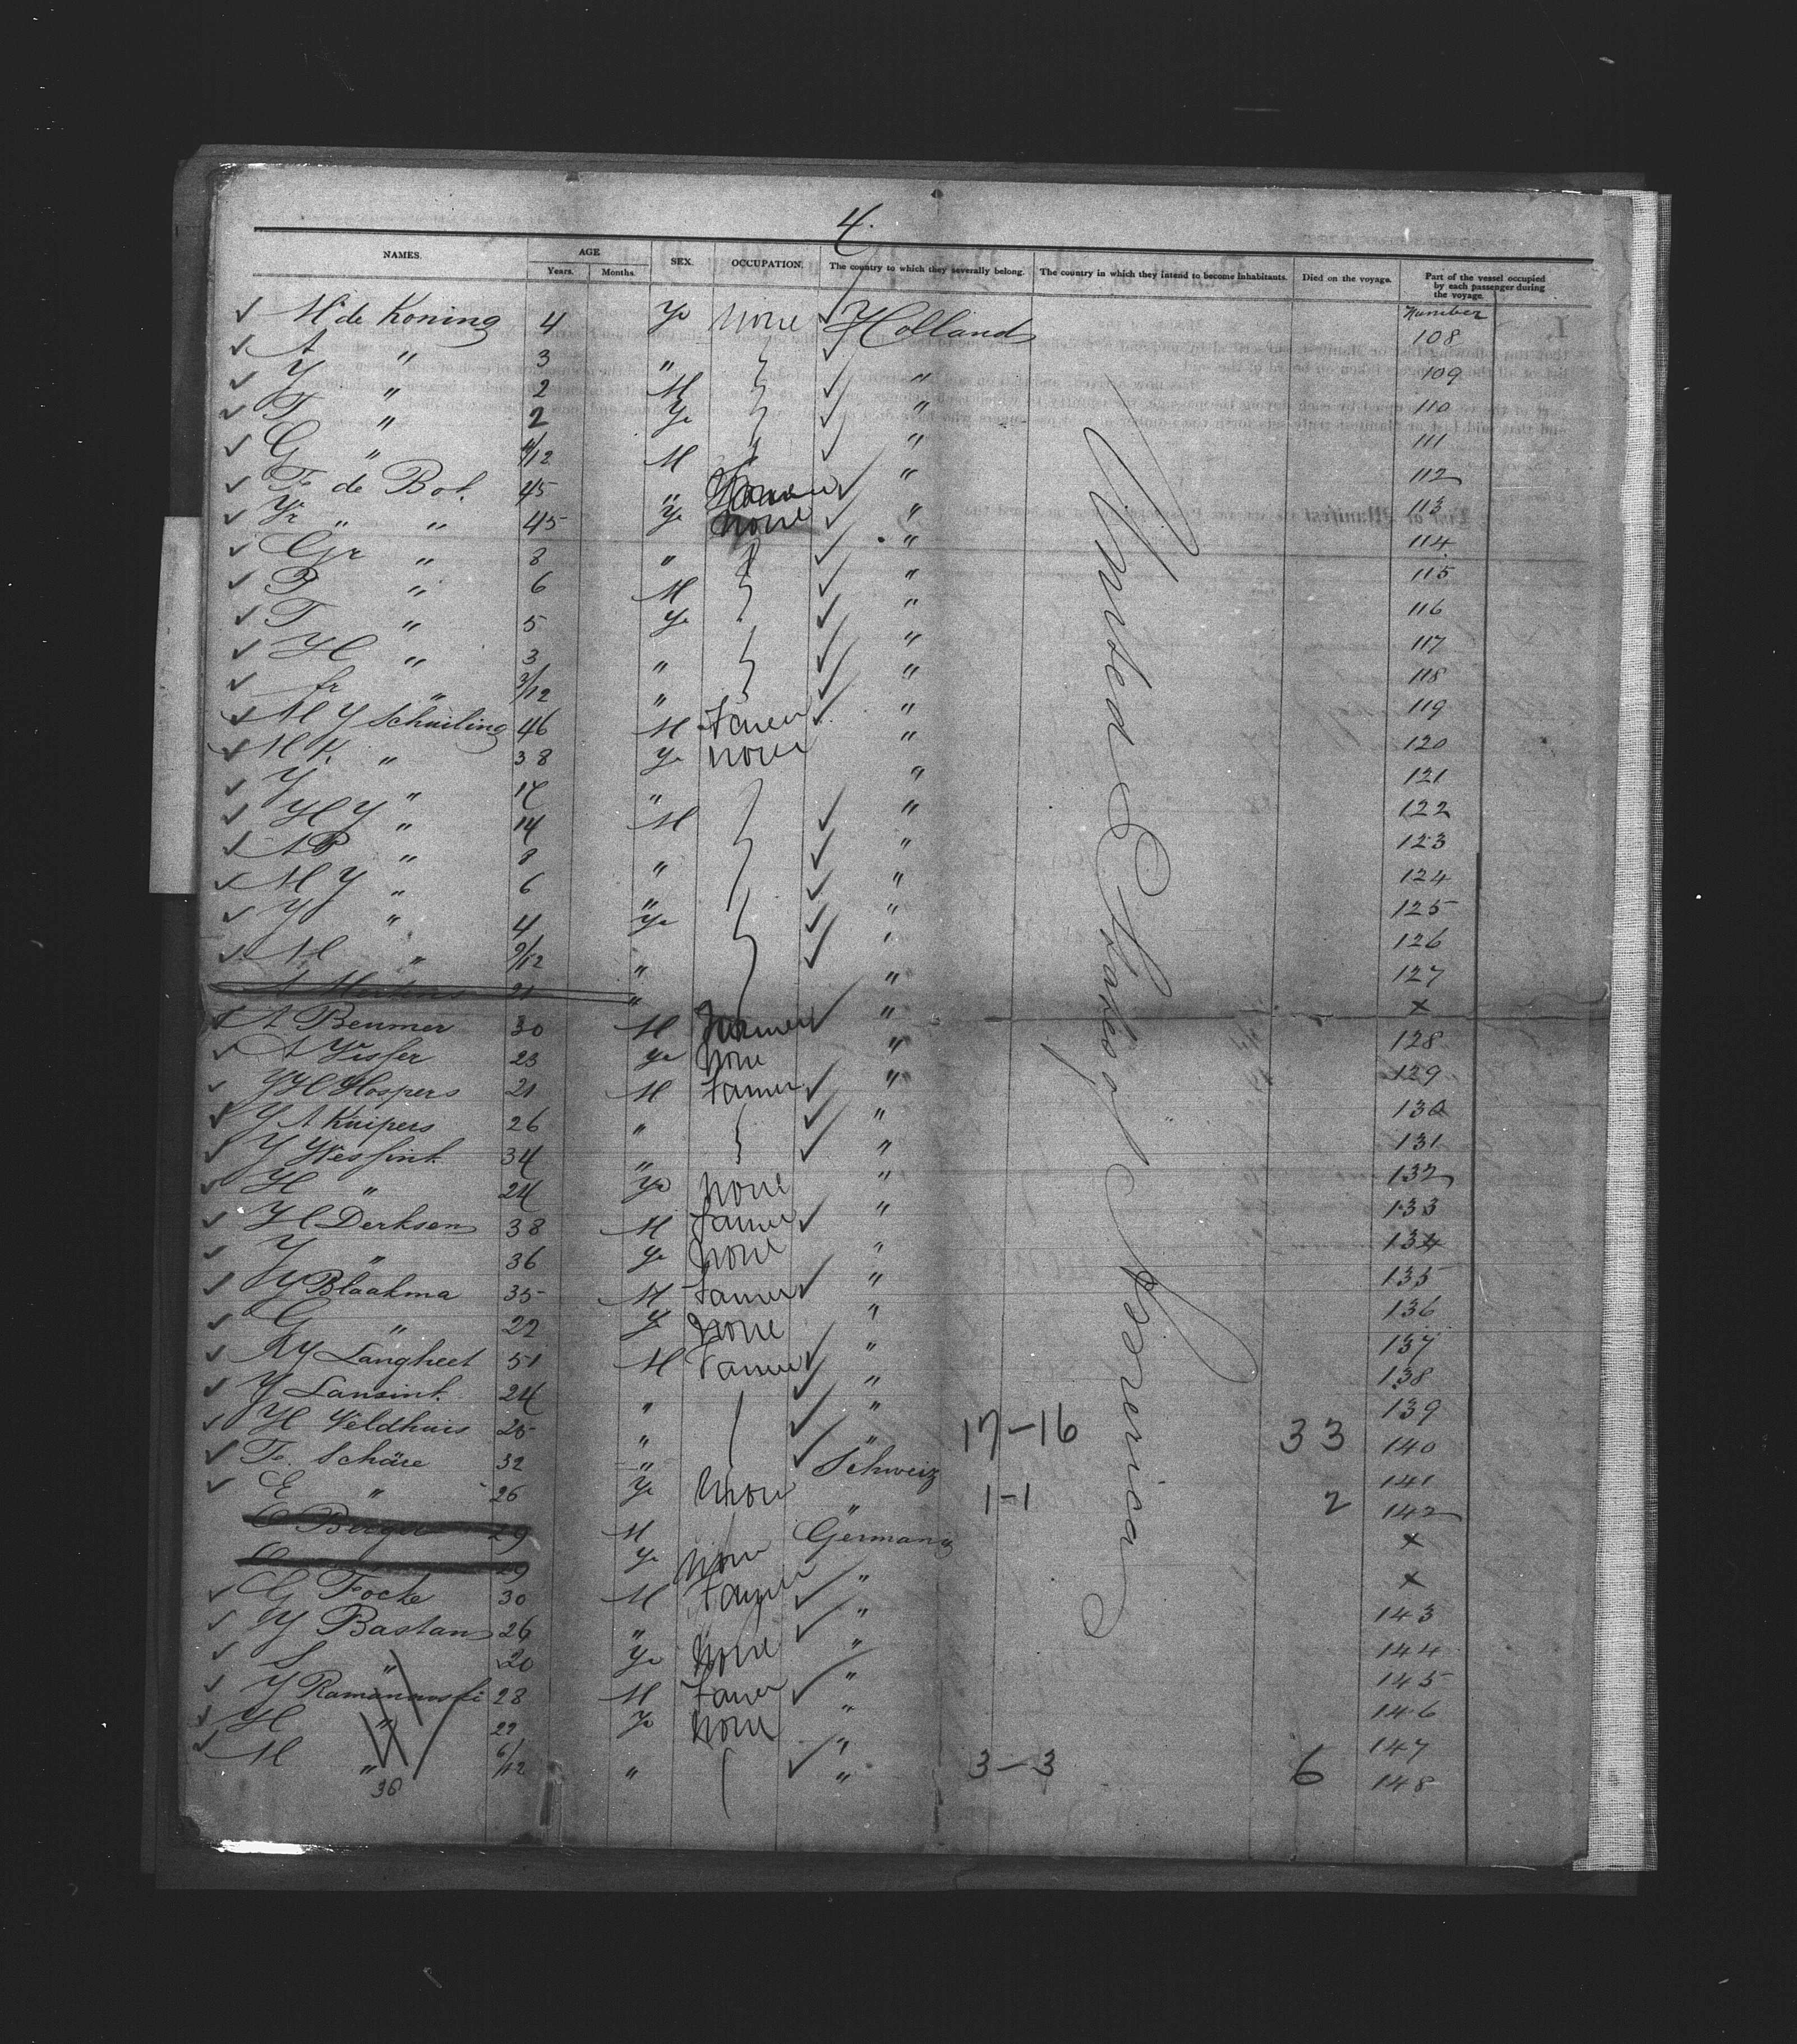 4.
NAMES. AGE SEX. OCCUPATION. The country to which they severally belong. The country in which they intend to become inhabitants. Died on the voyage. Part of the vessel occupied by each passenger during the voyage.
Years. Months.
Number
M de Koning 4 Ye None Holland 108
A " 3 " " 109
Y " 2 M " 110
T " 2 Ye " 111
G " 4/12 M " 112
Fr de Bot. 45 " Farmer " 113
Yr " " 45 Ye None " 114
Gr " 8 " " 115
P " 6 M " 116
T " 5 Ye " 117
H " 3 " " 118
fr " 3/12 " " 119
M Y Schuiling 46 M Farmer " 120
M K " 38 Ye None " 121
Y " 17 " " 122
H Y " 14 M " 123
A P " 8 " " 124
M Y " 6 " " 125
Y " 4 Ye " 126
M " 9/12 " " 127
A Mertens 21 " " x
A Beumer 30 M Farmer " 128
A Visser 23 Ye None " 129
Y H Hospers 21 M Farmer " 130
Y A Kuipers 26 " " 131
Y Wessink 34 " " 132
H " 24 Ye None " 133
H Derksen 38 M Farmer " 134
Y " 36 Ye None " 135
Y Blaakma 35 M Farmer " 136
G " 22 Ye None " 137
Y Langheet 51 M Farmer " 138
Y Lansink 24 " " 139
H Veldhuis 25 " " 17-16 33 140
Fr. Schäre 32 " Schweiz 141
E " 26 Ye None " 1-1 2 142
C Berger 29 M Germany x
29 Ye None " x
G Focke 30 M Farmer " 143
Y Bastan 26 " " 144
S " 20 Ye None " 145
Y Ramanowski 28 M Farmer " 146
H " 22 Ye None " 147
M " 6/12 " " 3-3 6 148
36
United States of America